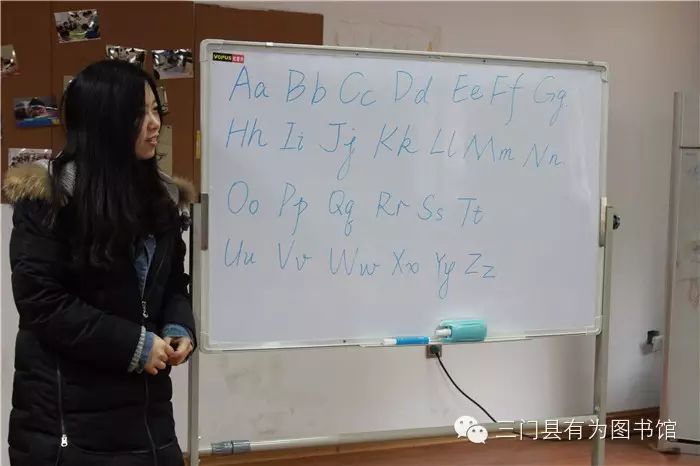 VOPUS
Aa Bb Cc Dd Ee Ff Gg
Hh Ii Jj Kk Ll Mm Nn
Oo Pp Qq Rr Ss Tt
Uu Vv Ww Xx Yy Zz
三门县有为图书馆